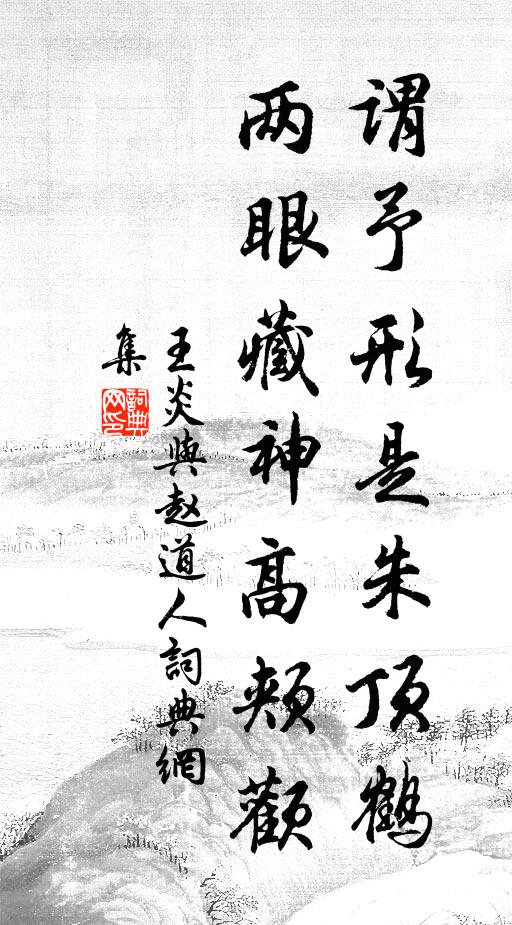 谓予形是朱顶鹤
两眼藏神高颊颧
王炎與赵道人詞典網
集
詞典网印